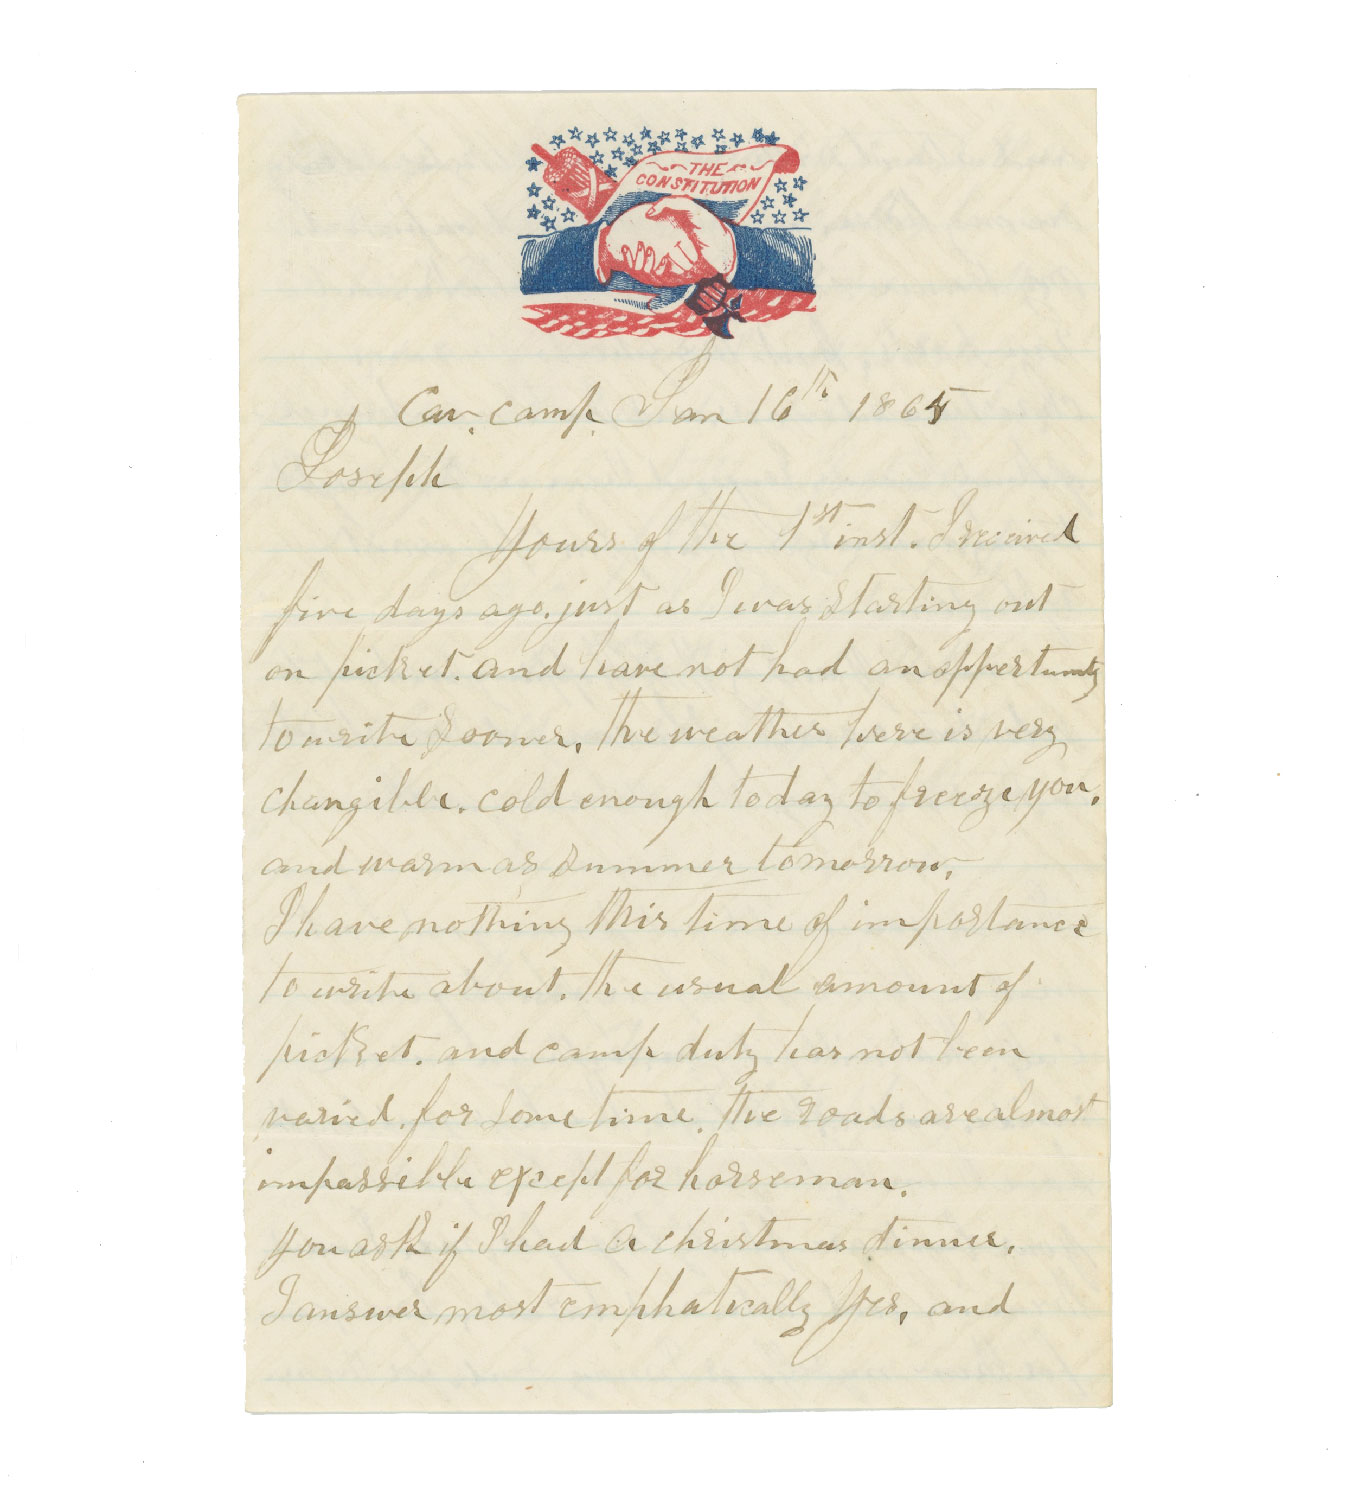 THE
CONSTITUTION
Cav. camp. Jan 16th 1865
Joseph
Yours of the 1st inst. I received
five days ago. just as I was starting out
on picket. and have not had an oppertunity
to write sooner, the weather here is very
changible. cold enough today to freeze you,
and warm as summer tomorrow,
I have nothing this time of importance
to write about. the usual amount of
picket. and camp duty has not been
varied. for some time. the roads are almost
impassible except for horseman.
you ask if I had a christmas dinner.
I answer most emphatically Yes, and